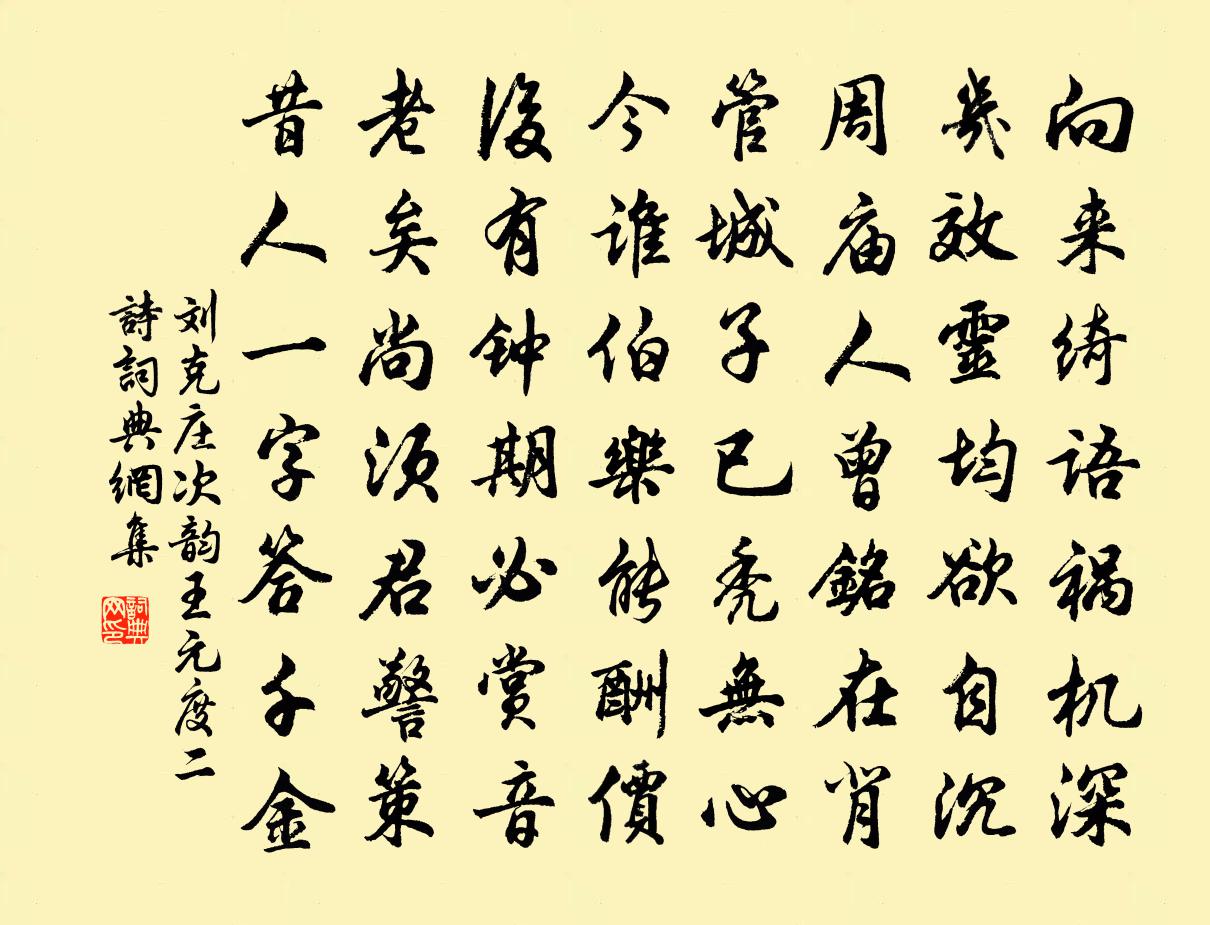 向来绮语祸机深
几效靈均欲自沉
周庙人曾銘在背
管城子已秃無心
今谁伯樂能酬價
後有钟期必赏音
老矣尚须君警策
昔人一字答千金
刘克庄次韵王元度二
詩詞典網集
詞典网印